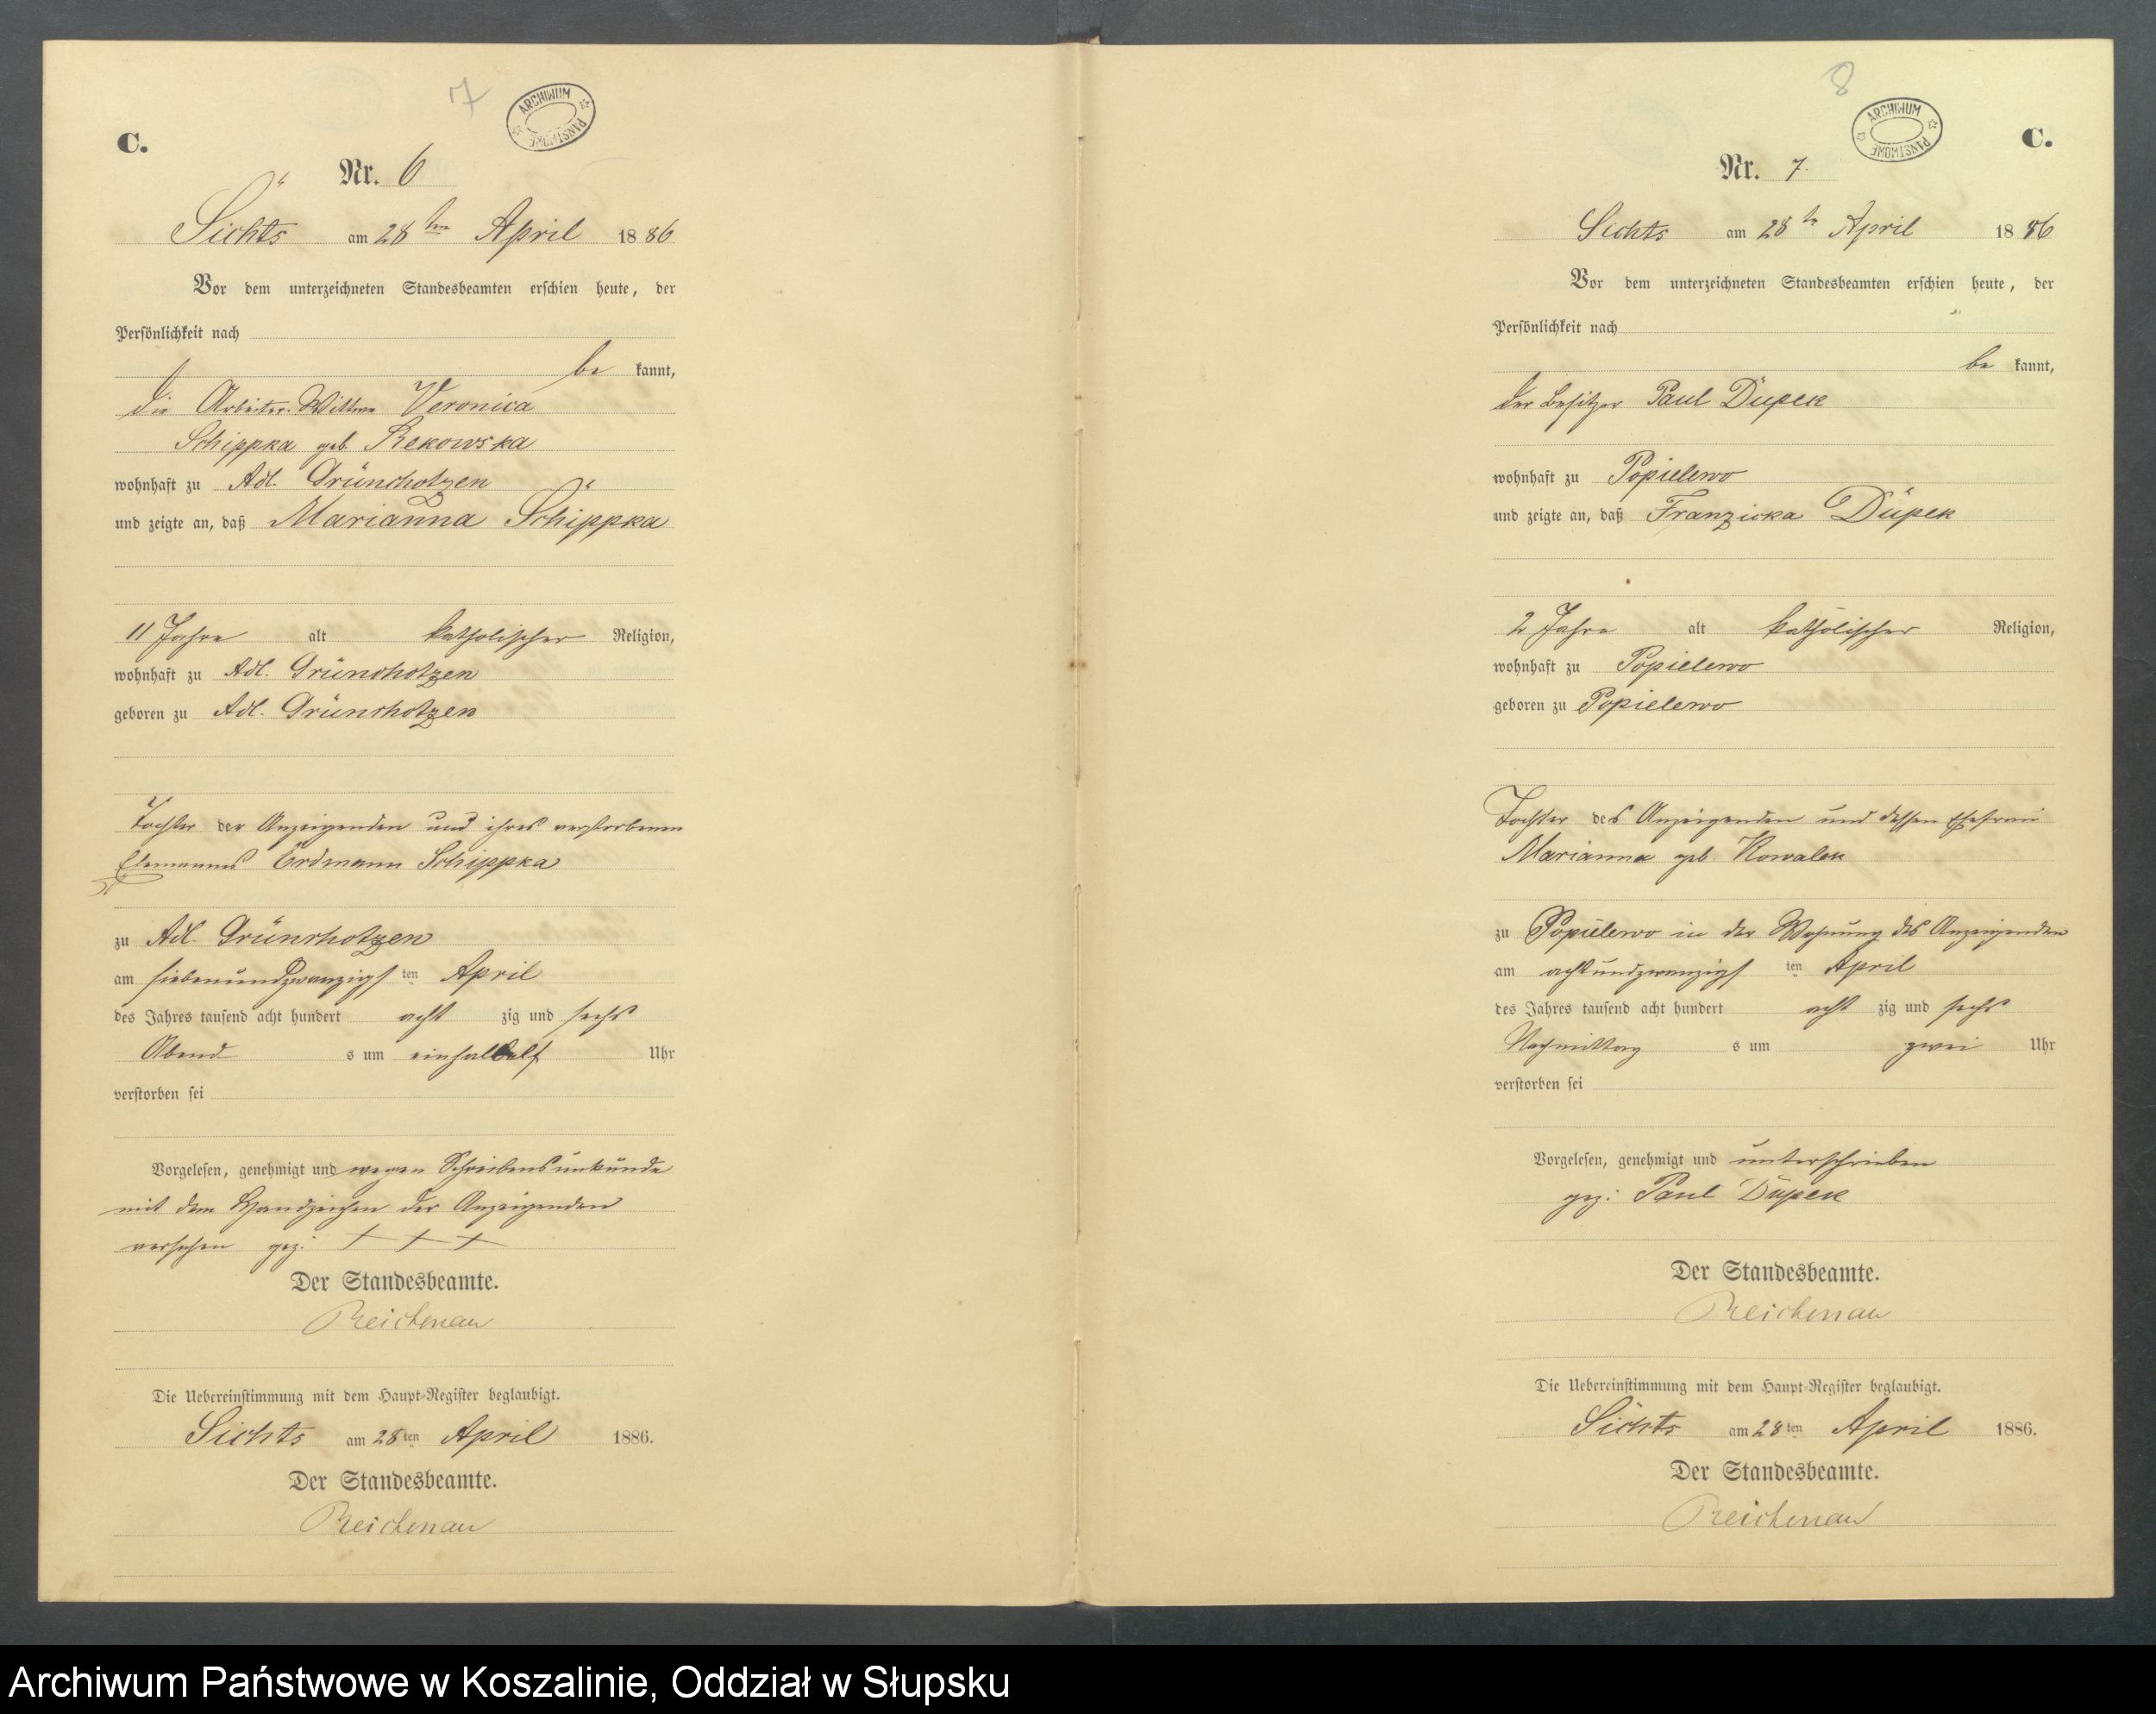 7
ARCHIWUM PAŃSTWOWE
C.
Nr. 6
Sichts am 28ten April 1886
Vor dem unterzeichneten Standesbeamten erschien heute, der
Persönlichkeit nach
be kannt,
die Arbeiter-Wittwe Veronica
Schippka geb. Rekowska
wohnhaft zu Adl. Grünchotzen
und zeigte an, daß Marianna Schippka
11 Jahre alt katholischer Religion,
wohnhaft zu Adl. Grünchotzen
geboren zu Adl. Grünchotzen
Tochter der Anzeigenden und ihres verstorbenen
Ehemannes Erdmann Schippka
zu Adl. Grünchotzen
am siebenundzwanzigsten April
des Jahres tausend acht hundert acht zig und sechs
Abend s um einhalbelf Uhr
verstorben sei
Vorgelesen, genehmigt und wegen Schreibensunkunde
mit dem Handzeichen der Anzeigenden
versehen gez: + + +
Der Standesbeamte.
Reichenau
Die Uebereinstimmung mit dem Haupt-Register beglaubigt.
Sichts am 28ten April 1886.
Der Standesbeamte.
Reichenau
8
ARCHIWUM PAŃSTWOWE
C.
Nr. 7.
Sichts am 28ten April 1886
Vor dem unterzeichneten Standesbeamten erschien heute, der
Persönlichkeit nach
be kannt,
der Besitzer Paul Dupek
wohnhaft zu Popielewo
und zeigte an, daß Franzicka Dupek
2 Jahre alt katholischer Religion,
wohnhaft zu Popielewo
geboren zu Popielewo
Tochter des Anzeigenden und dessen Ehefrau
Marianna geb. Kowalek
zu Popielewo in der Wohnung des Anzeigenden
am achtundzwanzigsten April
des Jahres tausend acht hundert acht zig und sechs
Nachmittag s um zwei Uhr
verstorben sei
Vorgelesen, genehmigt und unterschrieben
gez: Paul Dupek
Der Standesbeamte.
Reichenau
Die Uebereinstimmung mit dem Haupt-Register beglaubigt.
Sichts am 28ten April 1886.
Der Standesbeamte.
Reichenau
Archiwum Państwowe w Koszalinie, Oddział w Słupsku